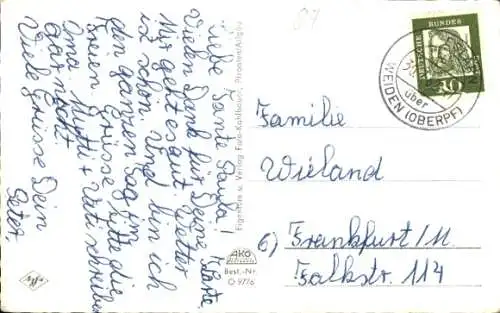 Liebe Tante Paula!
Vielen Dank für Deine Karte.
Mir geht es gut. Wetter
ist schön. Und bin ich
den ganzen Tag im
Freien. Grüsse bitte die
Oma. Mutti + Vati schreiben
aber nicht.
Viele Grüsse Dein
Peter.
Eigentum u. Verlag Foto-Kahlbauer, Pfronten/Allgäu
AKO
Best.-Nr.
O 9776
Agfa
DEUTSCHE BUNDESPOST
WEIDEN (OBERPF)
über
Familie
Wieland
6) Frankfurt/M.
Falkstr. 114